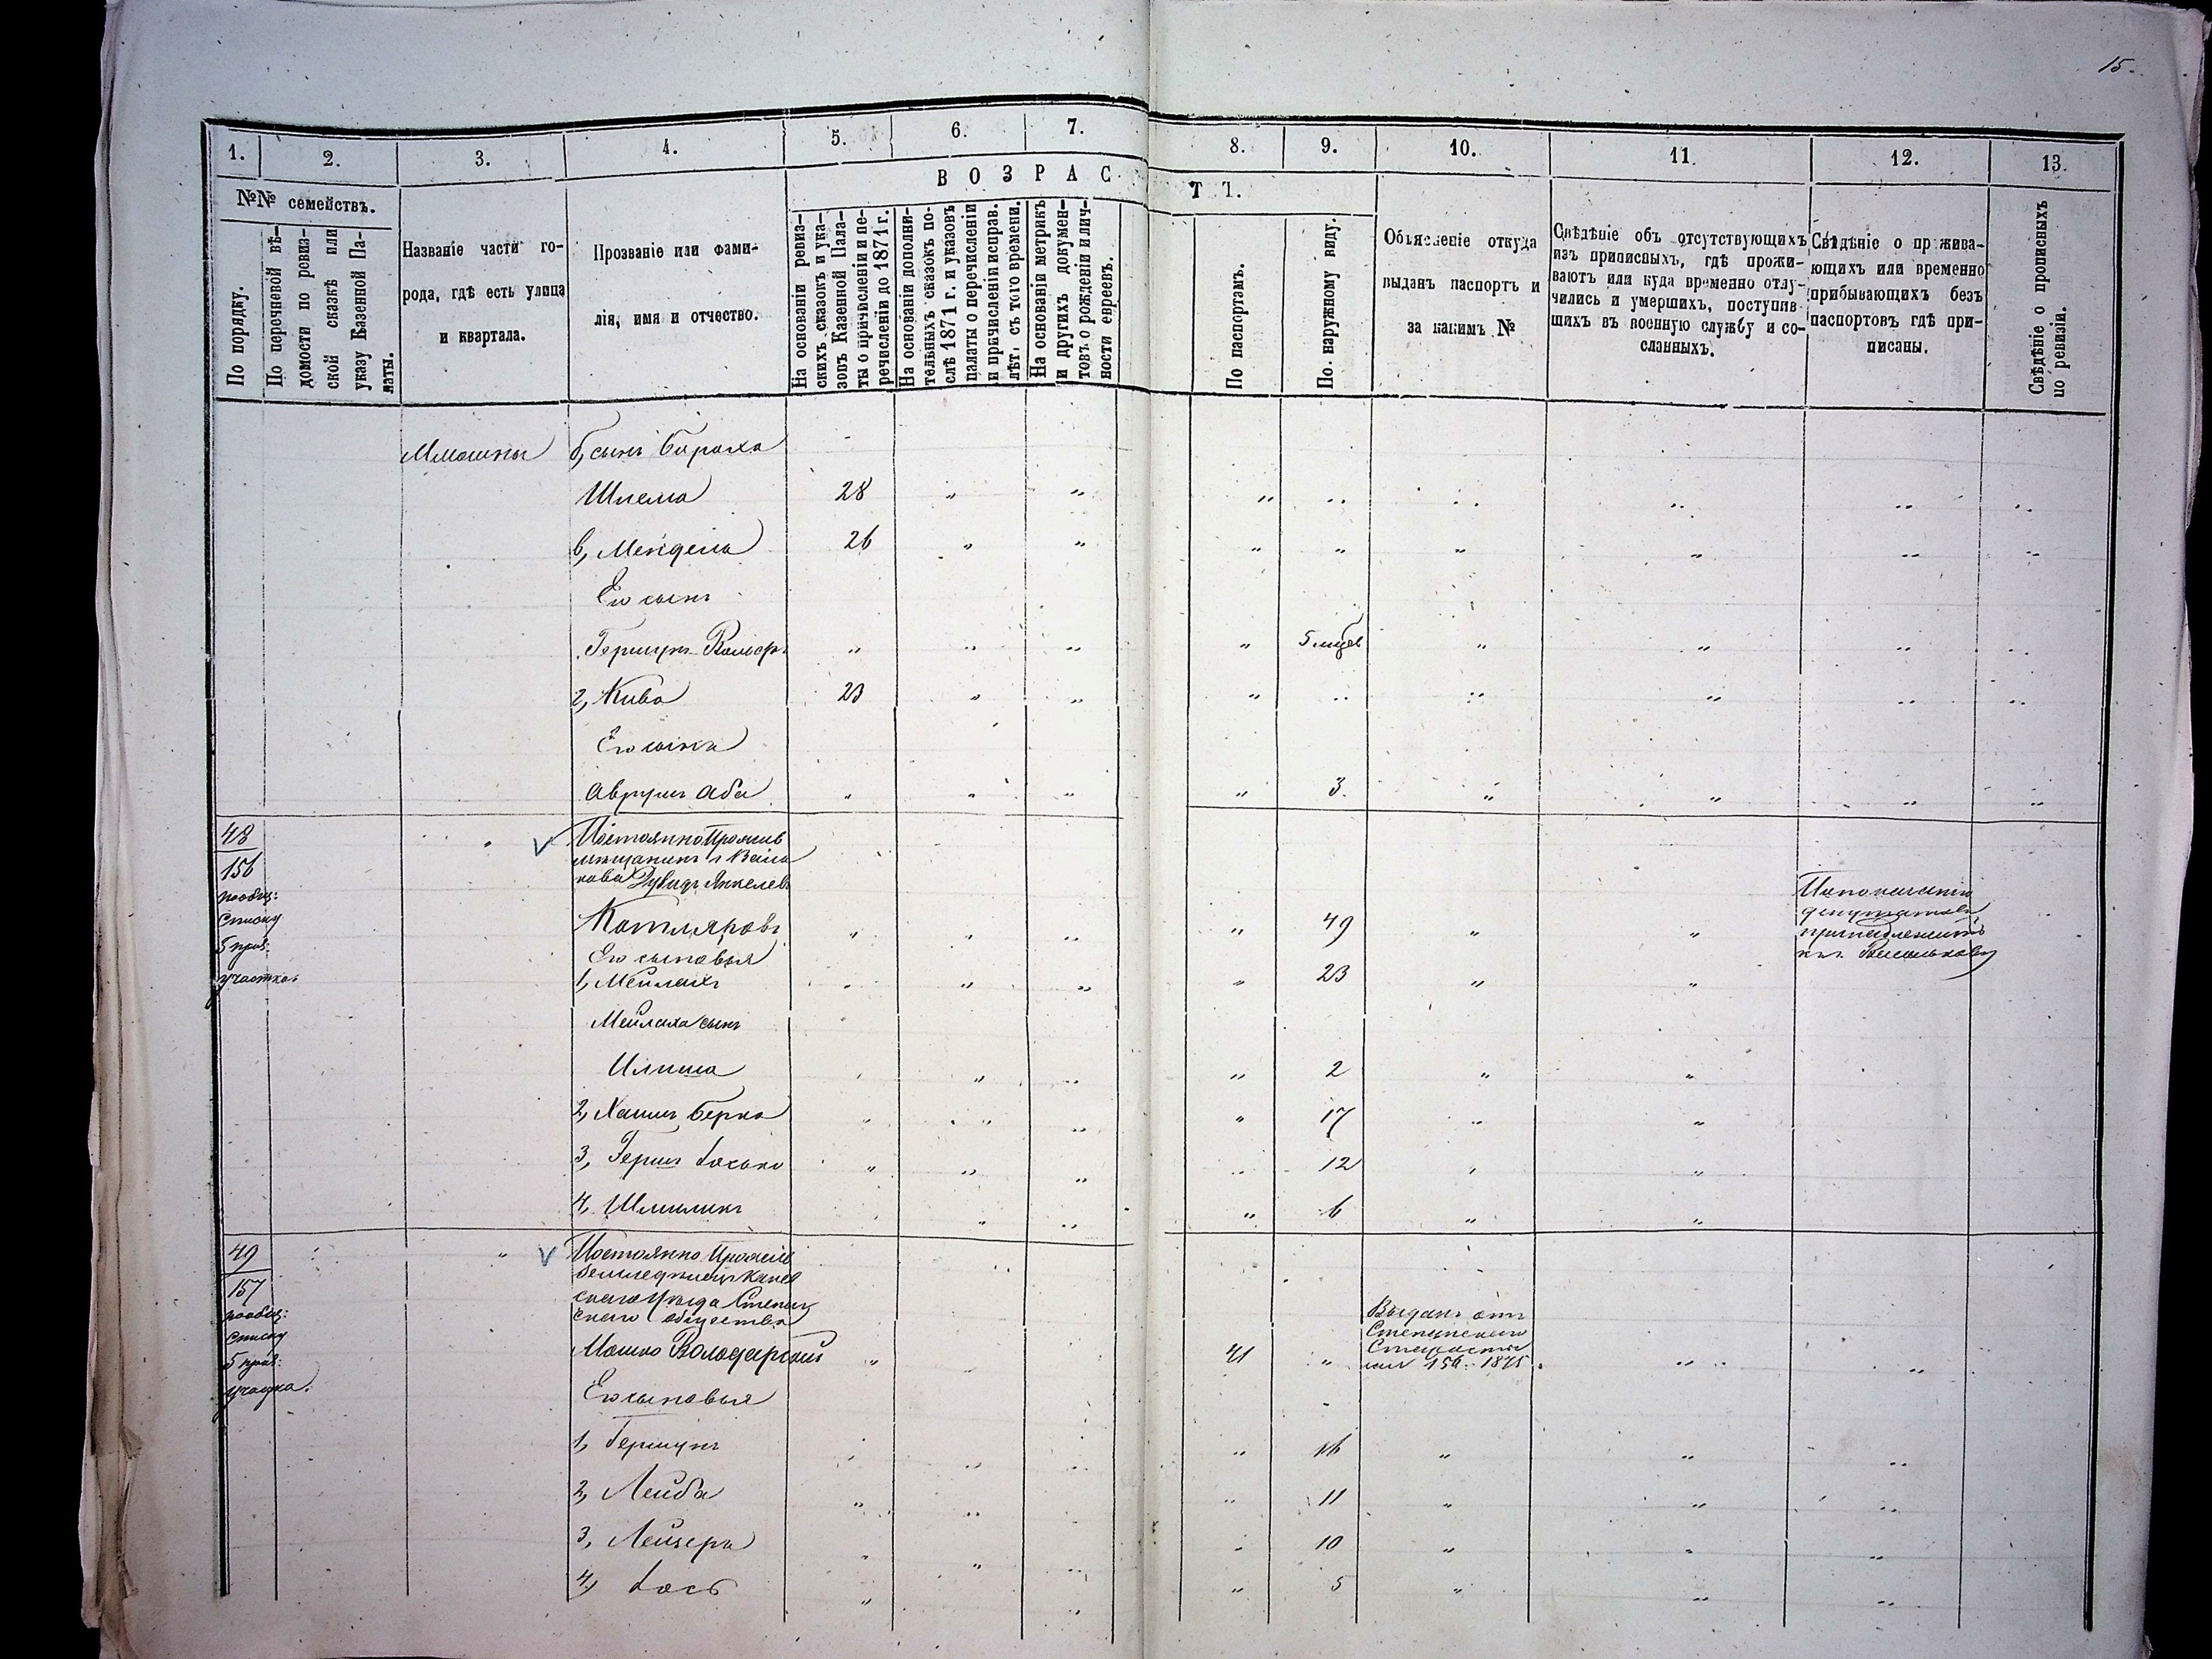 15.
1. 2. 3. 4. 5. 6. 7. 8. 9. 10. 11. 12. 13.
№№ семействъ.
По порядку.
По перечневой вѣ-
домости по ревиз-
ской сказкѣ или
указу Казенной Па-
латы.
Названіе части го-
рода, гдѣ есть улица
и квартала.
Прозваніе или фами-
лія, имя и отчество.
ВОЗРАСТЪ.
На основаніи ревиз-
скихъ сказокъ и ука-
зовъ Казенной Пала-
ты о причисленіи и пе-
речисленіи до 1871 г.
На основаніи дополни-
тельныхъ сказокъ по-
слѣ 1871 г. и указовъ
палаты о перечисленіи
и причисленіи исправ.
лѣтъ съ того времени.
На основаніи метрикъ
и другихъ докумен-
товъ о рожденіи и лич-
ности евреевъ.
По паспортамъ.
По наружному виду.
Объясненіе откуда
выданъ паспортъ и
за какимъ №
Свѣдѣніе объ отсутствующихъ
изъ приписныхъ, гдѣ прожи-
ваютъ или куда временно отлу-
чились и умершихъ, поступив-
шихъ въ военную службу и со-
сланныхъ.
Свѣдѣніе о прожива-
ющихъ или временно
прибывающихъ безъ
паспортовъ гдѣ при-
писаны.
Свѣдѣніе о прописныхъ
по ревизіи.
б, сынъ Бороха
Шлема 28 " " " " " " " "
в, Мендель 26 " " " " " " " "
Его сынъ
Гершунъ Вольфъ " " " " 5 " " " "
г, Кива 23 " " " " " " " "
Его сынъ
Аврумъ Аба " " " " 3. " " " "
48
156
пообщ:
списку
5 приз:
участка
Постоянно Прожив
мѣщанинъ г Василь
кова Дувидъ Янкелевъ
Котляровъ " " " " 49 " "
депутатовъ
принадлежитъ
къ г. Василькову
Его сыновья
1, Мейлахъ " " " " 23 " "
Мейлаха сынъ
" " " " 2 " "
2, Хаимъ Берко " " " " 17 " "
3, Гершъ Іосько " " " " 12 " "
4, Шмиликъ " " " " 6 " "
49
157
пообщ:
списку
5 приз:
участка.
Постоянно Прожив
земледѣлецъ Канев
скаго Уѣзда Степан
скаго общества
Мошко Володарскій " " 41 " " " "
Выданъ отъ
Степанскаго
Старосты
за № 156. 1875.
Его сыновья
1, Гершунъ " " " " 16 " " "
2, Лейба " " " " 11 " " "
3, Лейзеръ " " " " 10 " " "
4, Іось " " " " 5 " " "